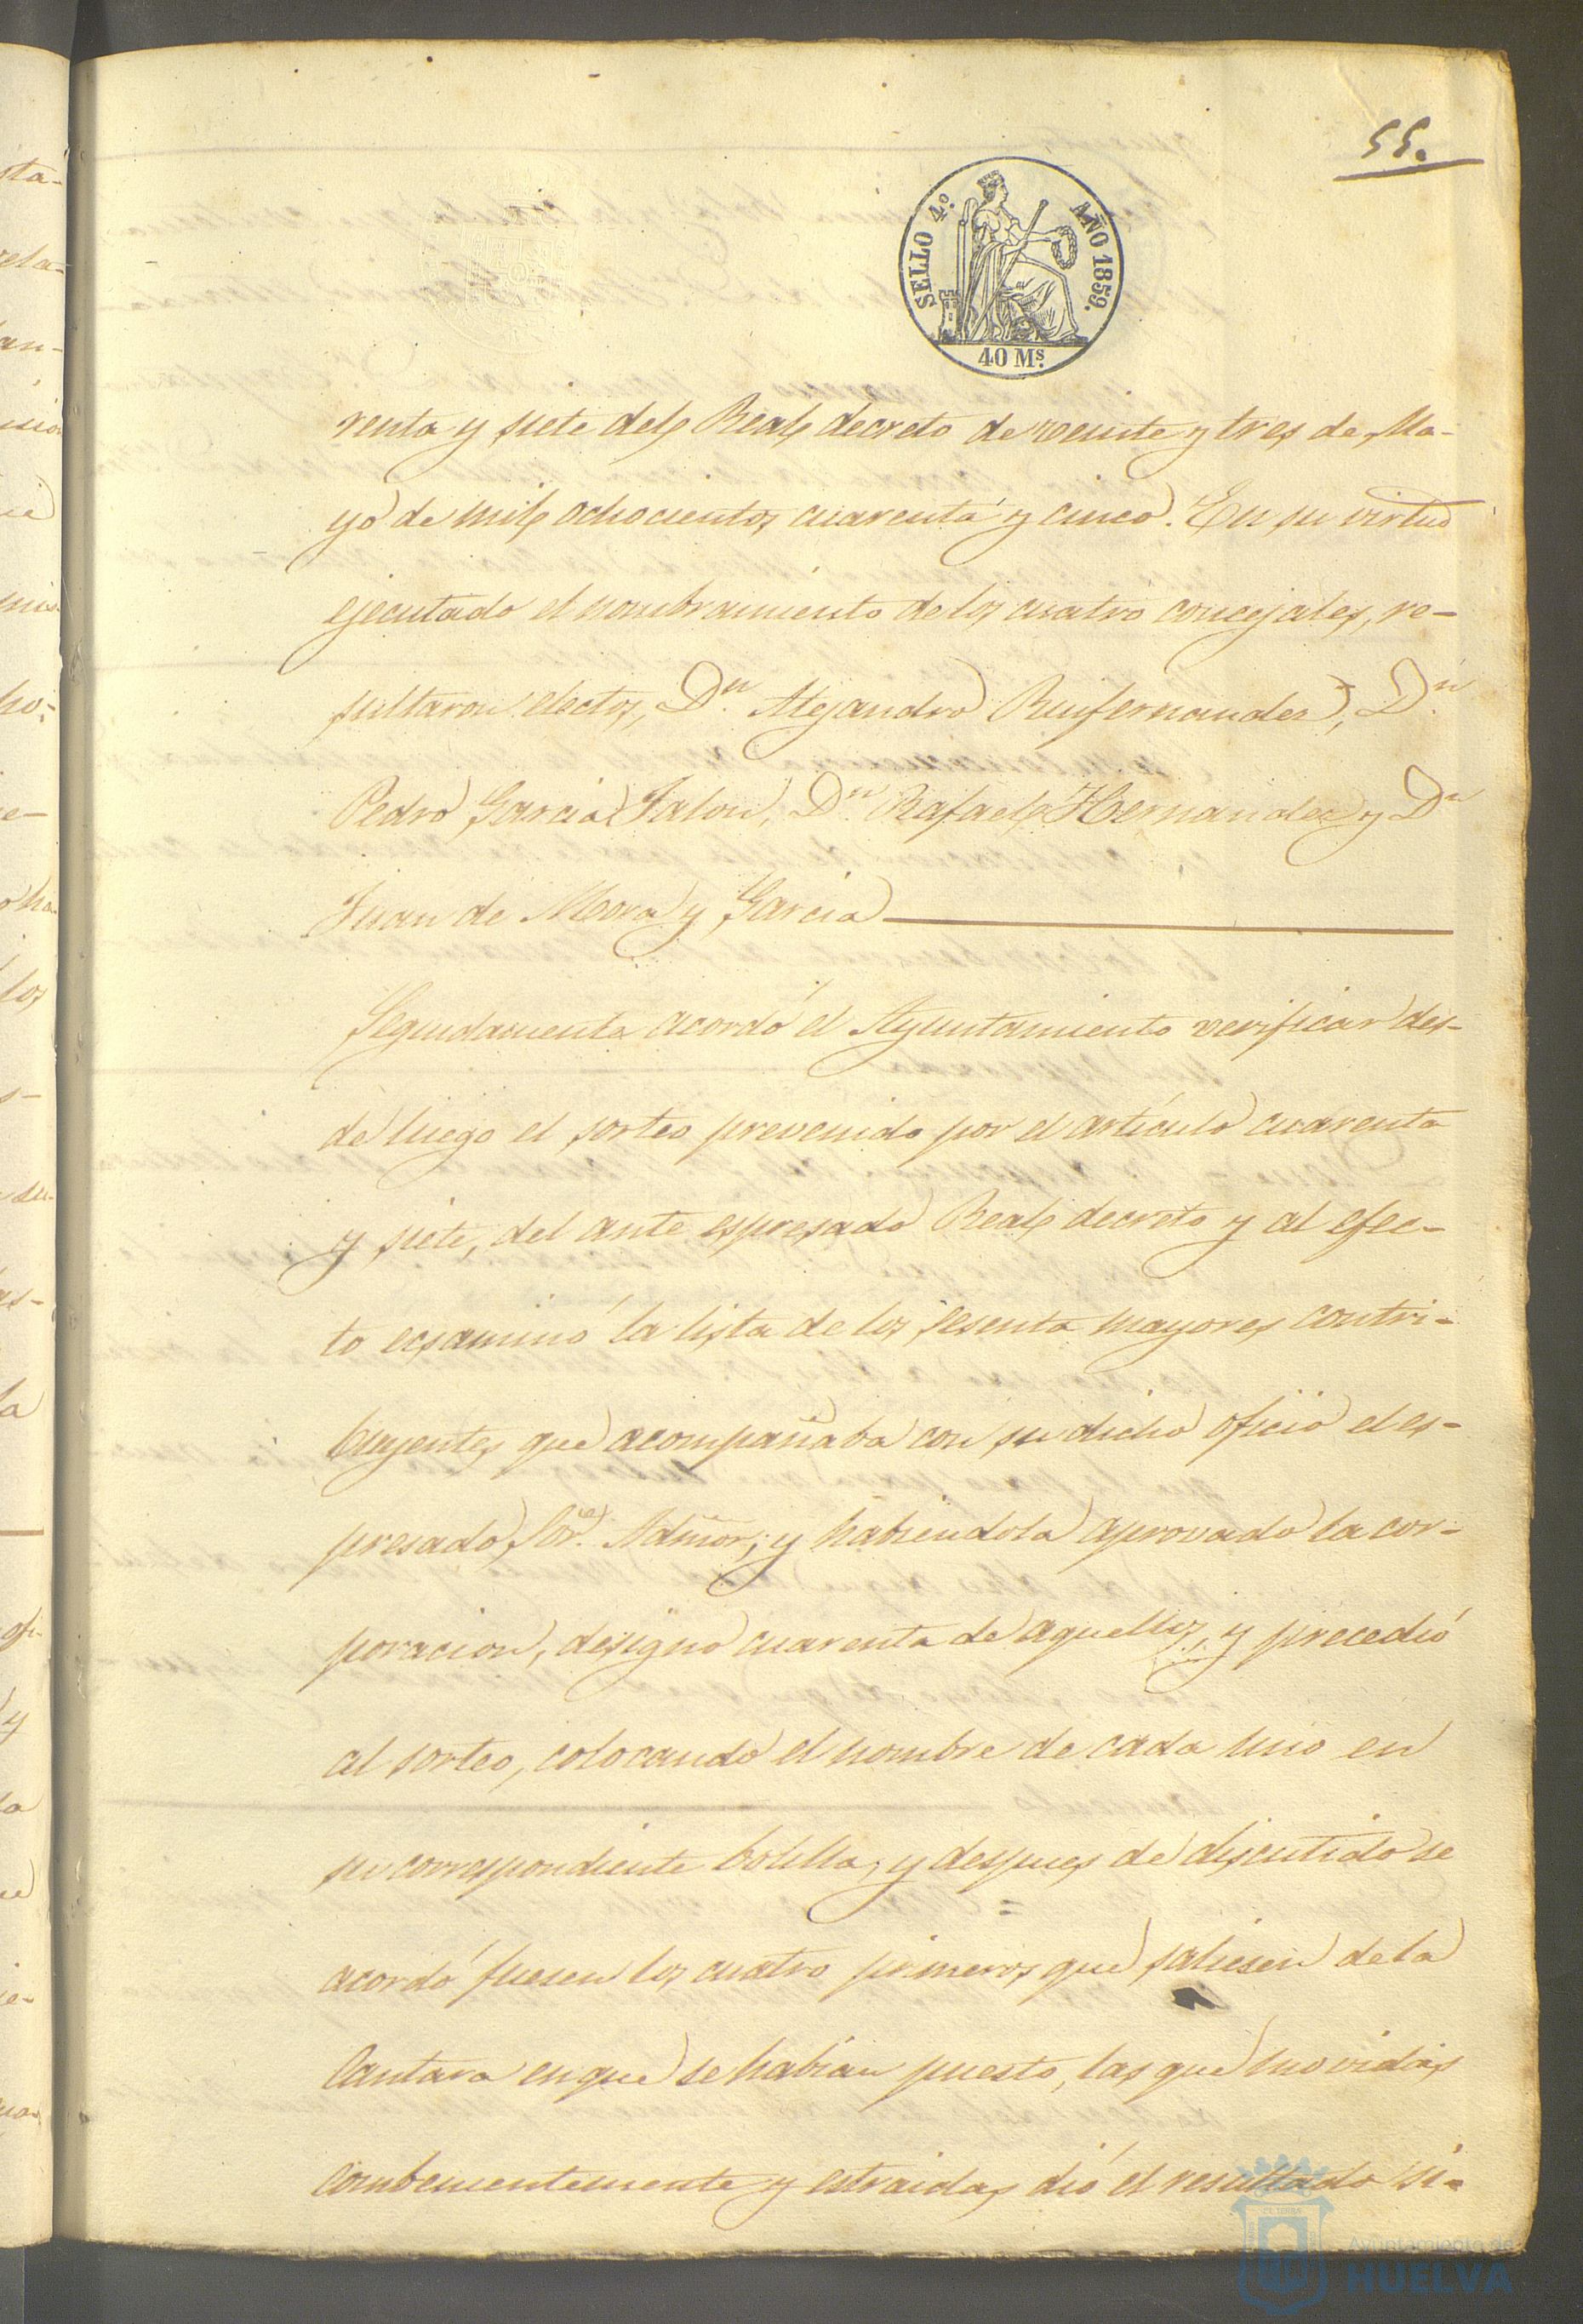 55.
SELLO 4.º AÑO 1859.
40 Ms.
renta y siete del Real decreto de veinte y tres de Ma-
yo de mil ochocientos cuarenta y cinco. En su virtud
ejecutado el nombramiento de los cuatro concejales, re-
sultaron electos, Dn. Alejandro Ruifernandez, Dn.
Pedro Garcia Jalon, Dn. Rafael Hernandez y Dn
Juan de Mora y Garcia
Seguidamente acordó el Ayuntamiento verificar des-
de luego el sorteo prevenido por el artículo cuarenta
y siete, del ante espresado Real decreto y al efec-
to ecsaminó la lista de los sesenta mayores contri-
buyentes que acompañaba con su dicho oficio el es-
presado Sor. Admor; y habiendola aprovado la cor-
poracion, designó cuarenta de aquellos, y precedió
al sorteo, colocando el nombre de cada uno en
su correspondiente bolilla, y despues de discutido se
acordó fuesen los cuatro primeros que saliesen de la
Cantara en que se habian puesto, las que movidas
combenientemente y estraidas dió el resultado si-
Ayuntamiento de
HUELVA